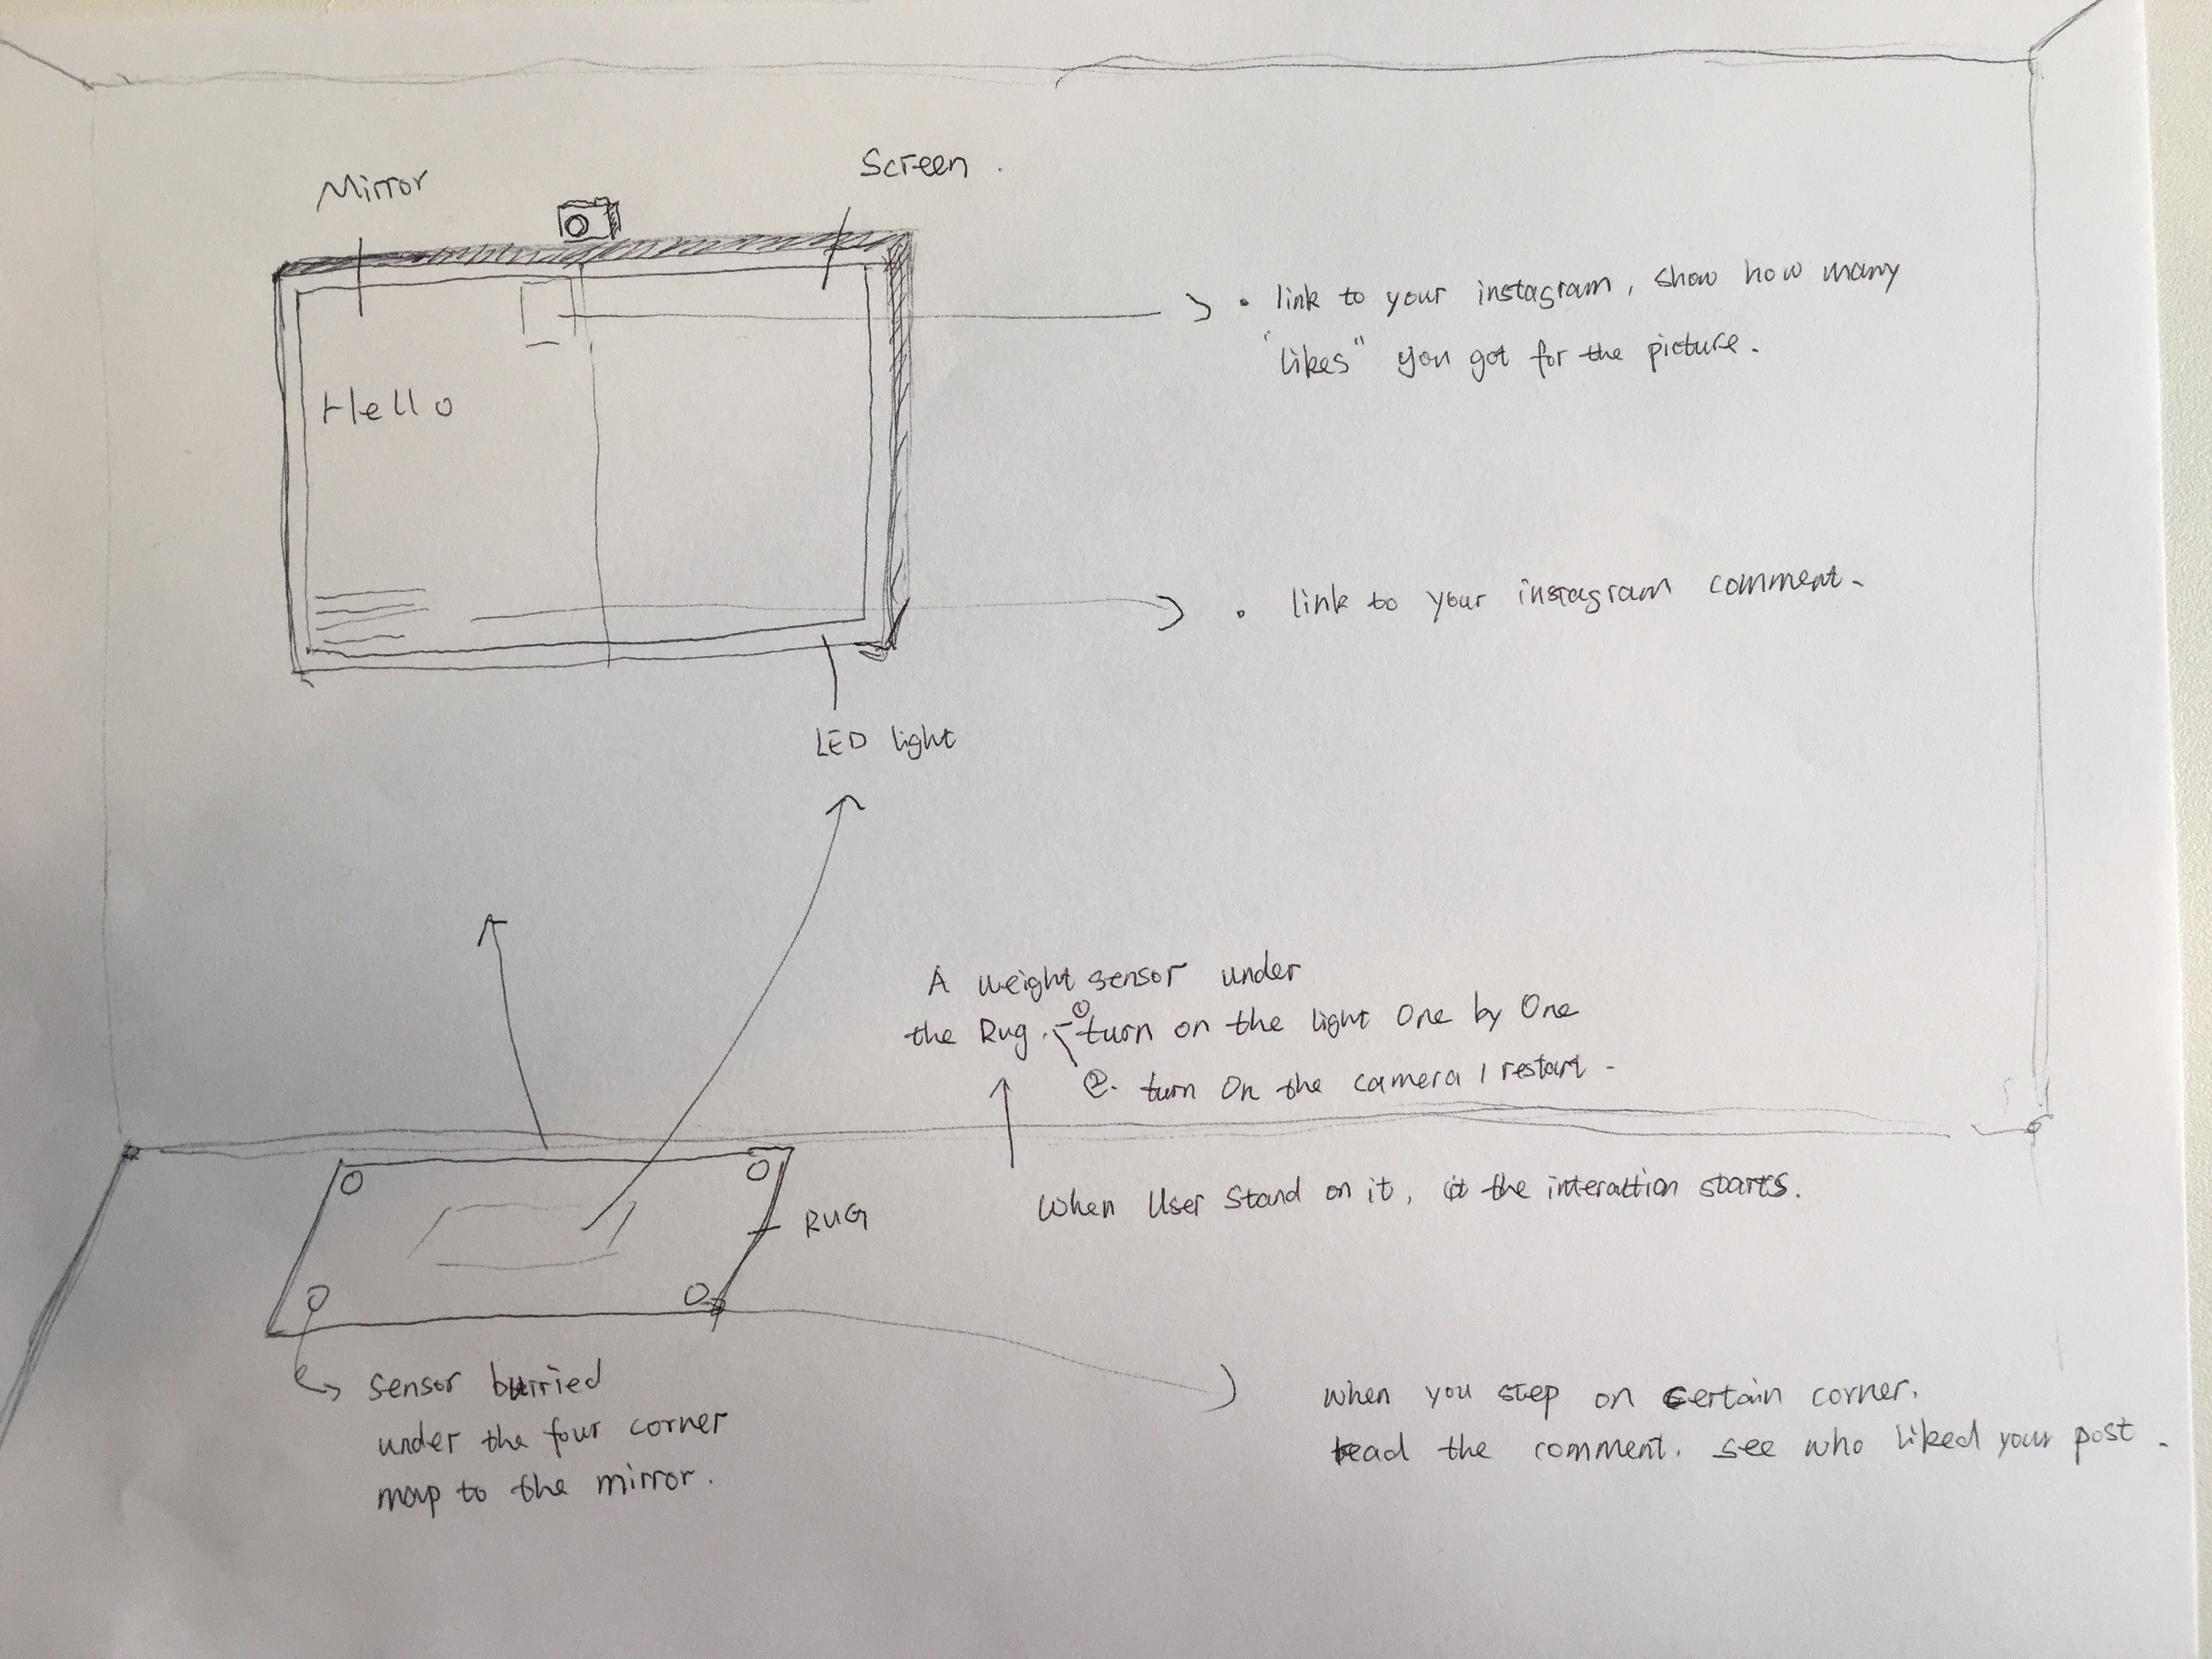 Mirror
Screen.
Hello
• link to your instagram, show how many
"likes" you got for the picture.
• link to your instagram comment.
LED light
A weight sensor under
the Rug. ① turn on the light One by One
②. turn On the camera / restart.
When User Stand on it, it the interaction starts.
RUG
sensor burried
under the four corner
map to the mirror.
when you step on certain corner.
read the comment. see who liked your post.